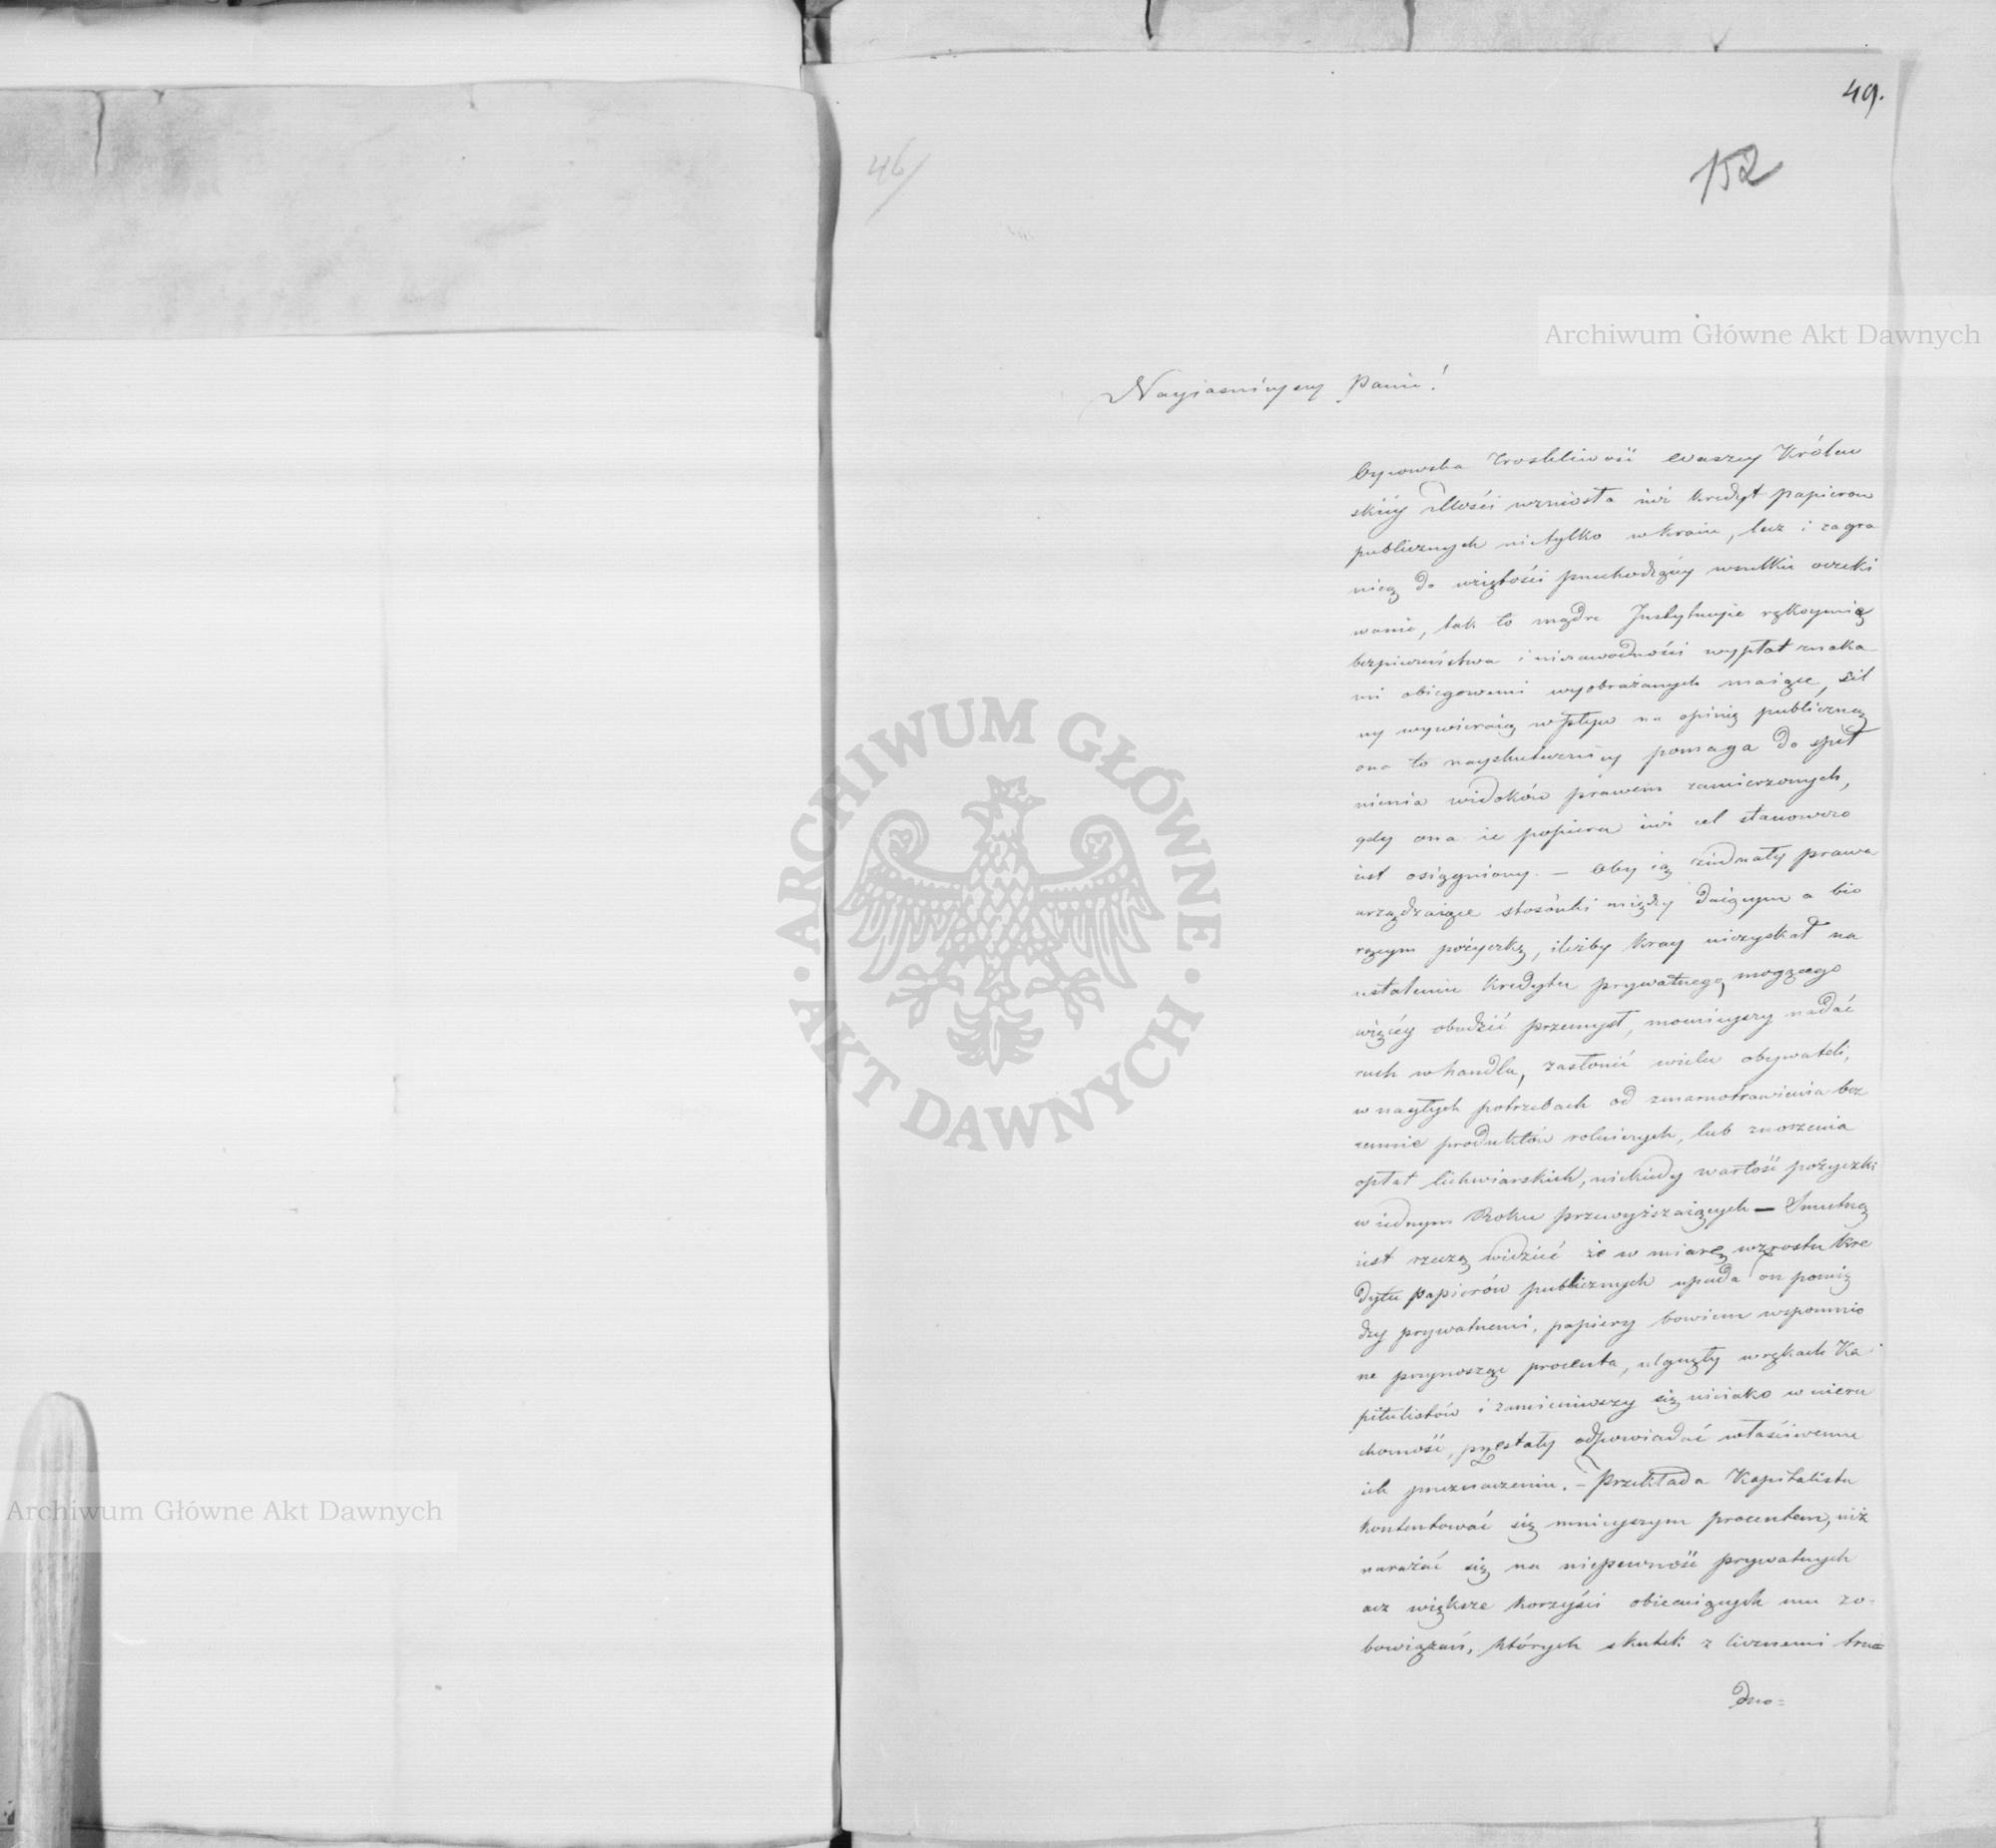 49.
152
46/
Nayiaśnieyszy Panie!
Oycowska troskliwość Waszey Królew
skiéy Mości wzniosła iuż kredyt papierow
publicznych nietylko w kraiu, lecz i zagra
nicą do wziętości przechodzącéy wszelkie oczeki
wanie, tak to mądre Instytucyie rękoymią
bezpieczeństwa i niezawodności wypłat znaka
mi obiegowemi wyobrażanych maiące, sil
ny wywieraią wpływ na opinię publiczną
ona to nayskuteczniey pomaga do speł
nienia widoków prawem zamierzonych,
gdy ona ie popiera iuż cel stanowczo
iest osiągniony. — Oby ią ziednały prawa
urządzaiące stosónki między daiącym a bio
rącym pożyczkę, ileżby kray niezyskał na
ustaleniu kredytu prywatnego, mogącego
więcéy obudzić przemysł, mocnieyszy nadać
ruch w handlu, zasłonić wielu obywateli,
w nagłych potrzebach od zmarnotrawienia bez
cennie produktów rolniczych, lub znoszenia
opłat lichwiarskich, niekiedy wartość pożyczki
w iednym Roku przewyższaiących — Smutną
iest rzeczą widzieć że w miarę wzrostu kre
dytu papierów publicznych upada on pomię
dzy prywatnemi, papiery bowiem wspomnio
ne przynosząc procenta, ulgnęły w rękach Ka
pitalistów i zamieniwszy się nieiako w nieru
chomość, przestały odpowiadać właściwemu
ich przeznaczeniu. — Przekłada Kapitalista
kontentować się mnieyszym procentem, niż
narażać się na niepewność prywatnych
acz większe korzyści obiecuiących mu zo-
bowiązań, których skutek z licznemi tru=
dno=
Archiwum Główne Akt Dawnych
ARCHIWUM GŁÓWNE · AKT DAWNYCH ·
Archiwum Główne Akt Dawnych